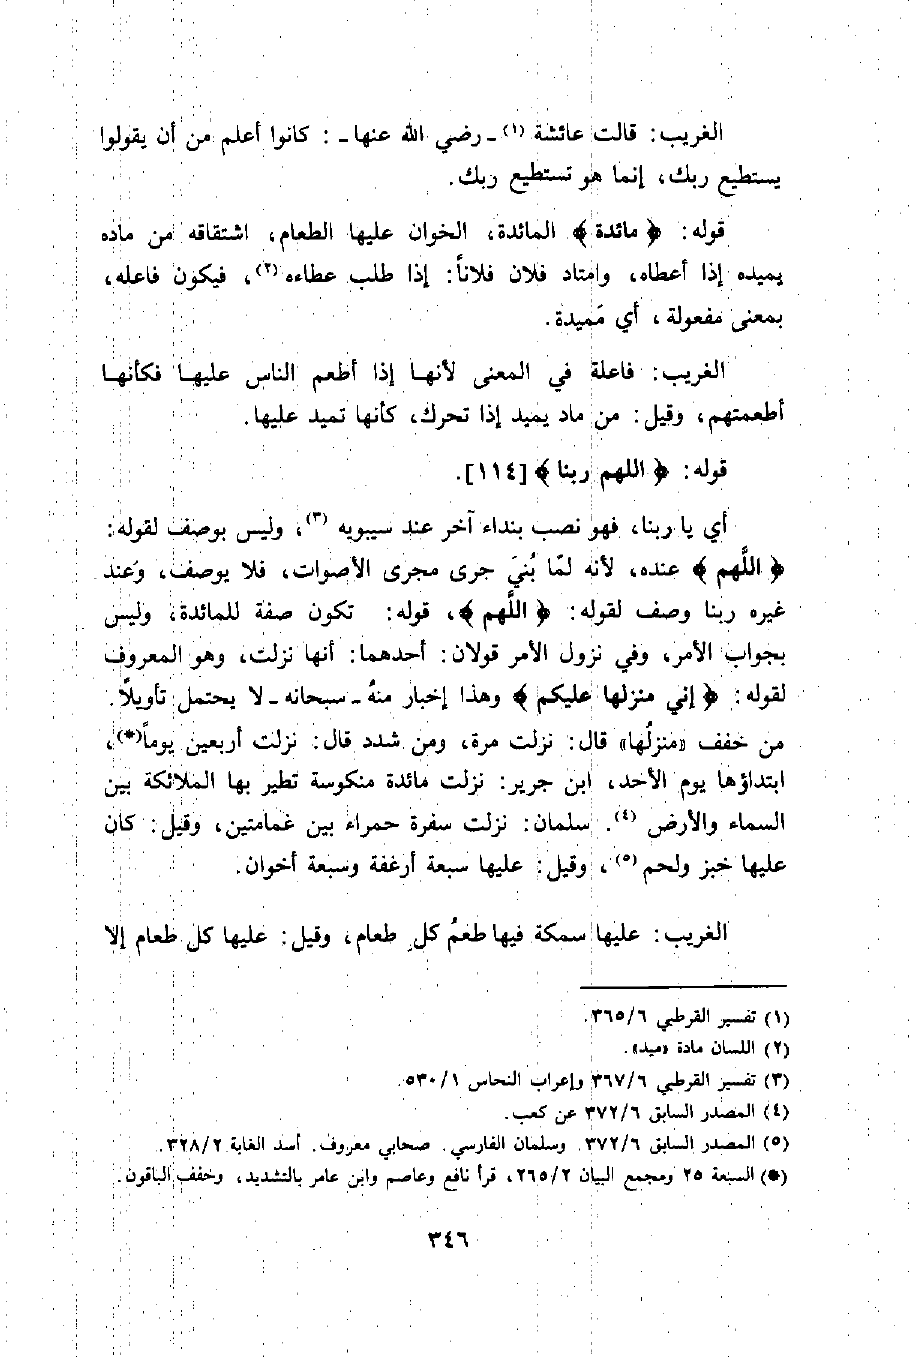 الغريب: قالت عائشة (١) ـ رضي الله عنها ـ : كانوا أعلم من أن يقولوا
يستطيع ربك، إنما هو تستطيع ربك.
قوله: ﴿ مائدة ﴾ المائدة، الخوان عليها الطعام، اشتقاقه من ماده
يميده إذا أعطاه، وامتاد فلان فلاناً: إذا طلب عطاءه (٢)، فيكون فاعله،
بمعنى مفعولة ، أي مَميدة.
الغريب: فاعلة في المعنى لأنهـا إذا أطعم الناس عليهـا فكأنهـا
أطعمتهم، وقيل: من ماد يميد إذا تحرك، كأنها تميد عليها.
قوله: ﴿ اللهم ربنا ﴾ [١١٤].
أي يا ربنا، فهو نصب بنداء آخر عند سيبويه (٣)، وليس بوصف لقوله:
﴿ اللَّهم ﴾ عنده، لأنه لمّا بُنيَ جرى مجرى الأصوات، فلا يوصف، وعند
غيره ربنا وصف لقوله: ﴿ اللَّهم ﴾، قوله: تكون صفة للمائدة، وليس
بجواب الأمر، وفي نزول الأمر قولان: أحدهما: أنها نزلت، وهو المعروف
لقوله: ﴿ إني منزلها عليكم ﴾ وهذا إخبار منهُ ـ سبحانه ـ لا يحتمل تأويلاً.
من خفف «منزلُها» قال: نزلت مرة، ومن شدد قال: نزلت أربعين يوماً(*)،
ابتداؤها يوم الأحد، ابن جرير: نزلت مائدة منكوسة تطير بها الملائكة بين
السماء والأرض (٤). سلمان: نزلت سفرة حمراء بين غمامتين، وقيل: كان
عليها خبز ولحم (٥)، وقيل: عليها سبعة أرغفة وسبعة أخوان.
الغريب: عليها سمكة فيها طعمُ كل طعام، وقيل: عليها كل طعام إلا
(١) تفسير القرطبي ٣٦٥/٦.
(٢) اللسان مادة «ميد».
(٣) تفسير القرطبي ٣٦٧/٦ وإعراب النحاس ٥٣٠/١.
(٤) المصدر السابق ٣٧٢/٦ عن كعب.
(٥) المصدر السابق ٣٧٢/٦. وسلمان الفارسي. صحابي معروف. أسد الغابة ٣٢٨/٢.
(*) السبعة ٢٥ ومجمع البيان ٢٦٥/٢، قرأ نافع وعاصم وابن عامر بالتشديد، وخفف الباقون.
٣٤٦